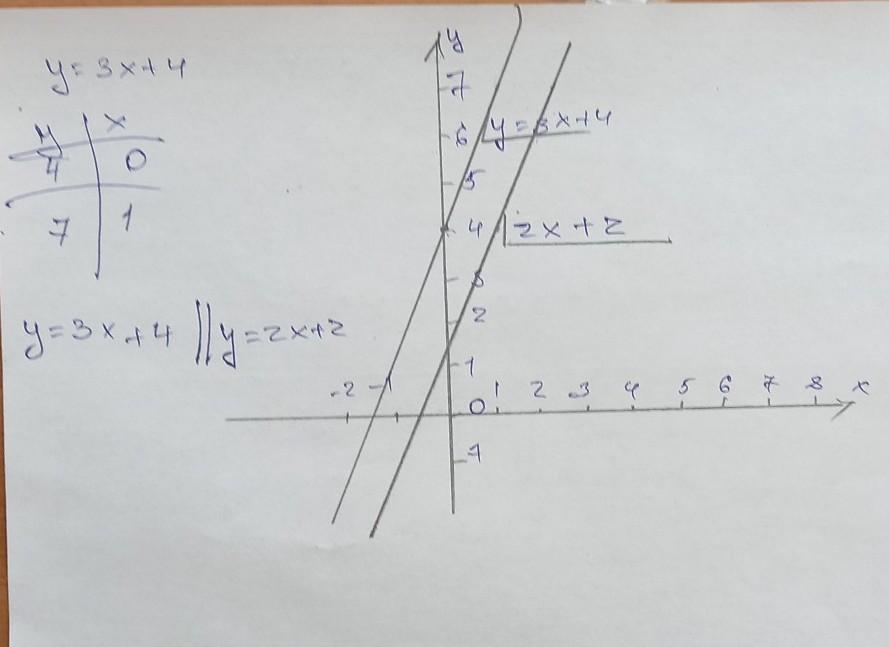 y=3x+4
y x
4 0
7 1
y=3x+4 || y=2x+2
y
7
6 y=3x+4
5
4 2x+2
3
2
1
-2 -1 0 1 2 3 4 5 6 7 8 x
-1